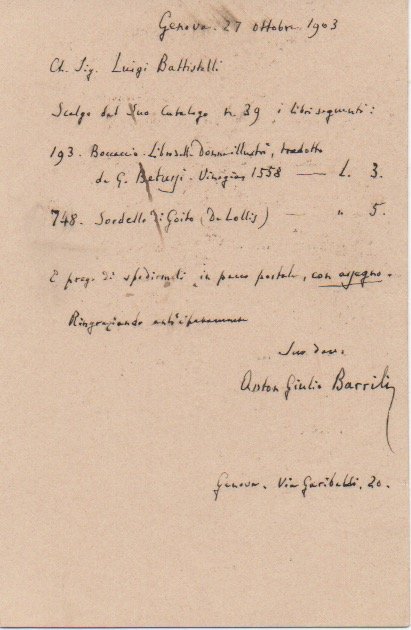 Genova. 27 ottobre 1903
Ch. Sig. Luigi Battistelli
Scelgo dal Suo Catalogo n. 39 i libri seguenti:
193. Boccaccio. Libro delle Donne illustri, tradotto
da G. Betussi. Vinegia 1558 — L. 3.
748. Sordello di Goito (De Lollis) — " 5.
E prego di spedirmeli in pacco postale, con assegno.
Ringraziando anticipatamente
Suo dev.
Anton Giulio Barrili
Genova. Via Garibaldi, 20.